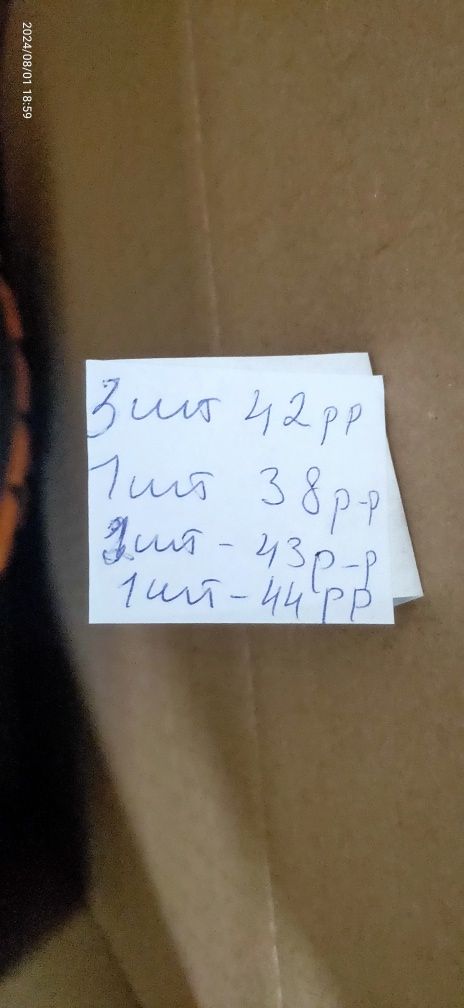 2024/08/01 18:59
3 шт 42 рр
1 шт 38 р-р
шт - 43 р-р
1 шт - 44 рр